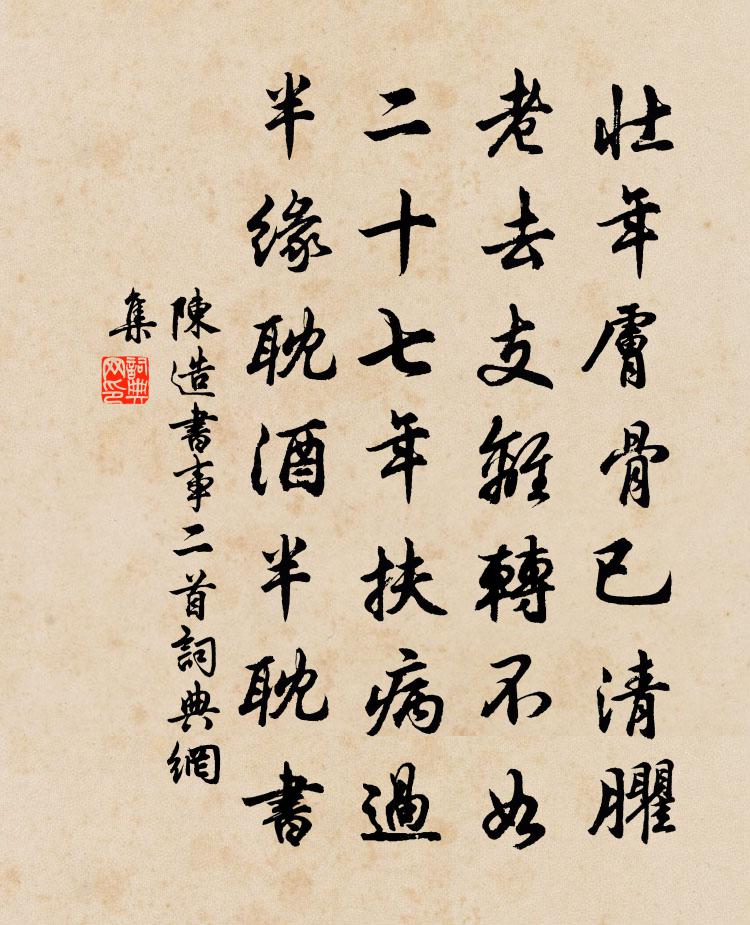 壯年膚骨已清臞
老去支離轉不如
二十七年扶病過
半緣耽酒半耽書
陳造書事二首詞典網
集
詞典网印